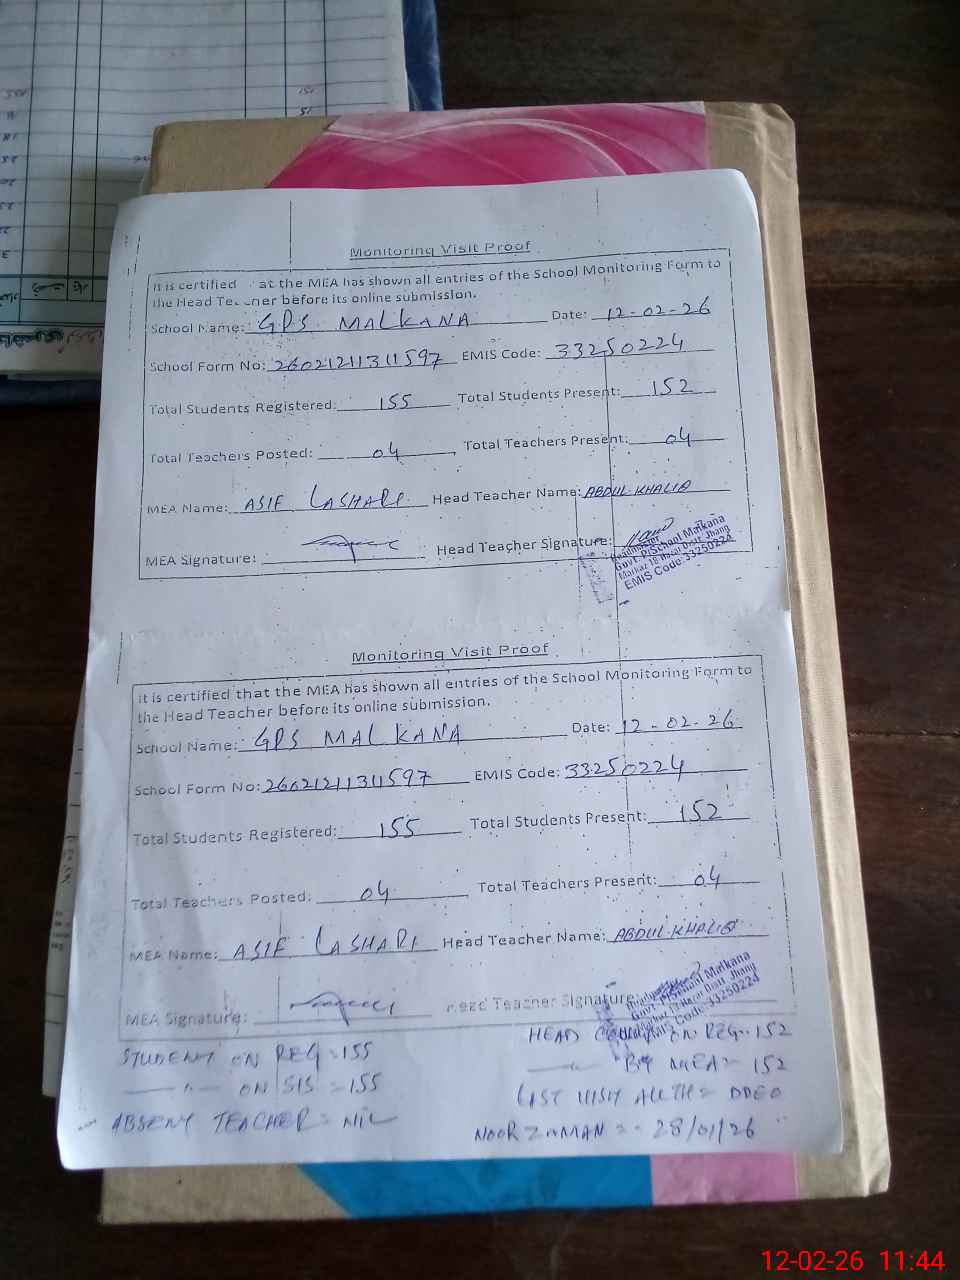 Monitoring Visit Proof
It is certified at the MEA has shown all entries of the School Monitoring Form to
the Head Te cher before its online submission.
School Name: GPS MALKANA Date: 12-02-26
School Form No: 26021211311597 EMIS Code: 33250224
Total Students Registered: 155 Total Students Present: 152
Total Teachers Posted: 04 Total Teachers Present: 04
MEA Name: ASIF LASHARI Head Teacher Name: ABDUL KHALIQ
MEA Signature: Head Teacher Signature:
Headmaster
Govt. P/School Malkana
Markaz 18 Hazari Distt Jhang
EMIS Code:33250224
Monitoring Visit Proof
It is certified that the MEA has shown all entries of the School Monitoring Form to
the Head Teacher before its online submission.
School Name: GPS MALKANA Date: 12-02-26
School Form No: 26021211311597 EMIS Code: 33250224
Total Students Registered: 155 Total Students Present: 152
Total Teachers Posted: 04 Total Teachers Present: 04
MEA Name: ASIF LASHARI Head Teacher Name: ABDUL KHALIQ
MEA Signature: Head Teacher Signature:
Govt. P/School Malkana
18 Hazari Distt Jhang
EMIS Code:33250224
STUDENT ON REG = 155
—"— ON SIS = 155
ABSENT TEACHER = NIL
HEAD COUNT ON REG = 152
—"— BY MEA = 152
LAST VISIT AUTH = DDEO
NOOR ZAMAN = 28/01/26
12-02-26 11:44